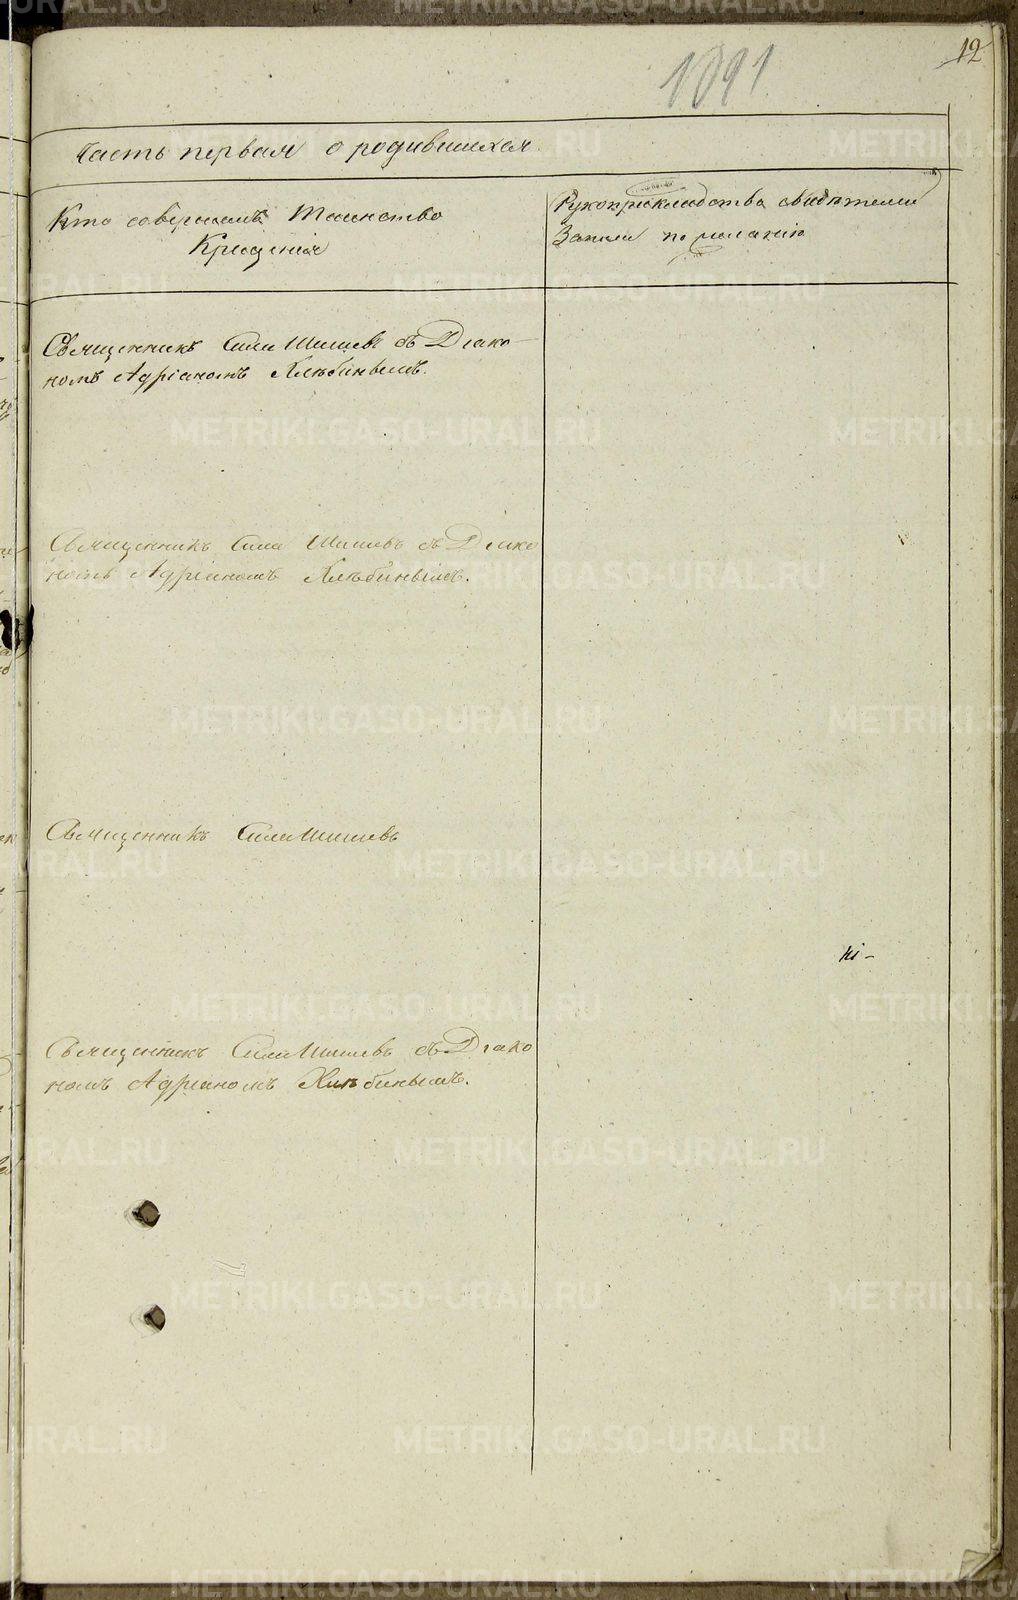 12
1091
Часть первая о родившихся.
Кто совершалъ Таинство
Крещенія
Рукоприкладство свидѣтелей
Записи по желанію
Священникъ Сила Шишевъ съ Діако-
номъ Адріаномъ Хлѣбинымъ.
Священникъ Сила Шишевъ съ Діако
номъ Адріаномъ Хлѣбинымъ.
Священникъ Сила Шишевъ
Священникъ Сила Шишевъ съ Діако
номъ Адріаномъ Хлѣбинымъ.
METRIKI.GASO-URAL.RU